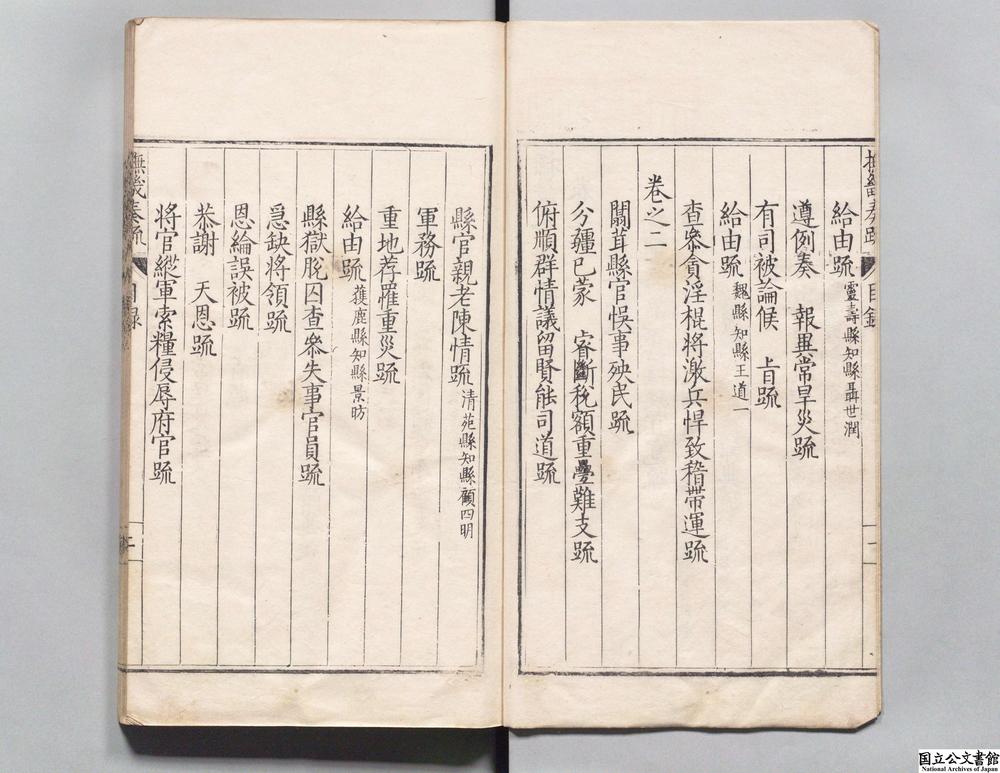 撫畿奏疏 目錄 一
給由疏 靈壽縣知縣聶世潤
遵例奏　報異常旱災疏
有司被論候　旨疏
給由疏 魏縣知縣王道一
查叅貪淫棍將激兵悍致稽帶運疏
卷之二
闒茸縣官悞事殃民疏
分疆已蒙　睿斷稅額重疊難支疏
俯順群情議留賢能司道疏
縣官親老陳情疏 清苑縣知縣顧四明
軍務疏
重地荐罹重災疏
給由疏 獲鹿縣知縣景昉
縣獄脫囚查叅失事官員疏
急缺將領疏
恩綸誤被疏
恭謝　天恩疏
將官縱軍索糧侵辱府官疏
撫畿奏疏 目録 二
国立公文書館
National Archives of Japan